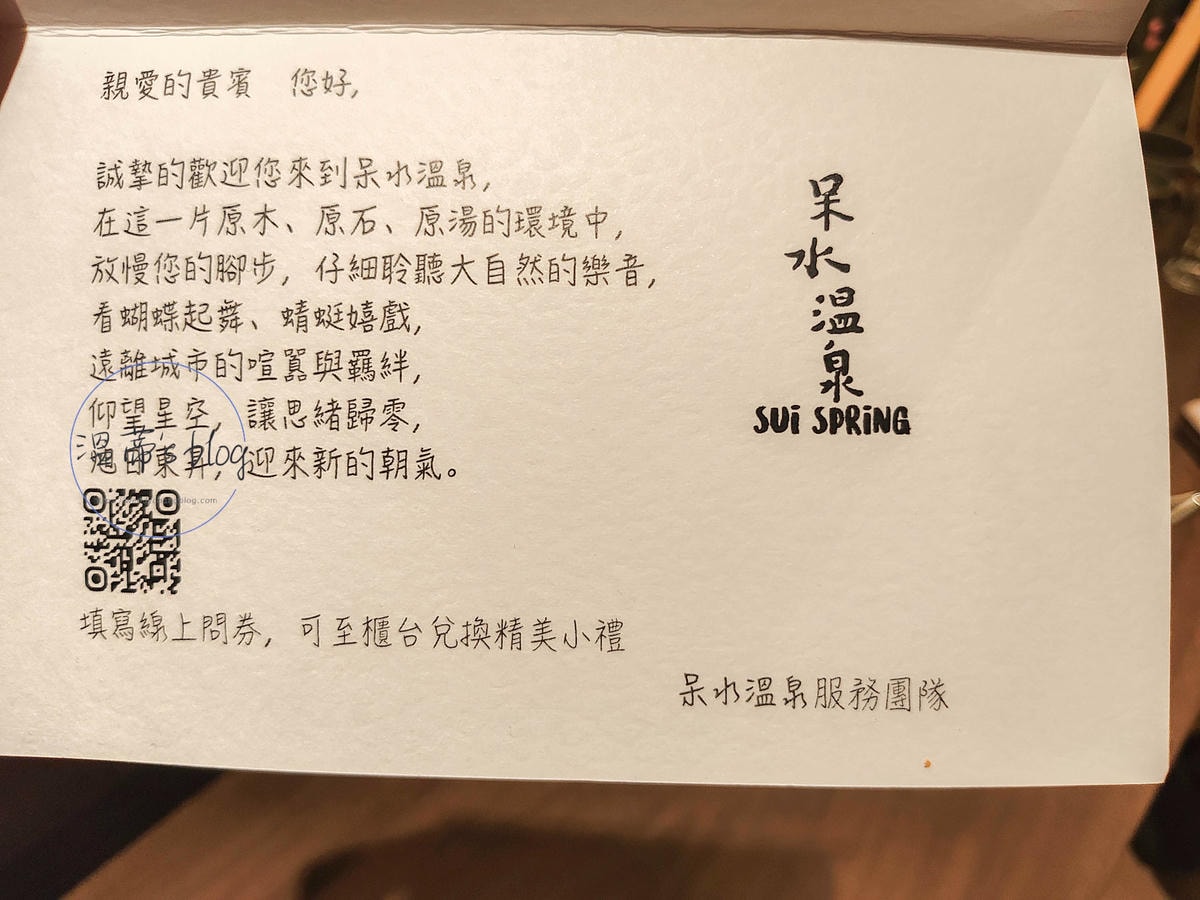 親愛的貴賓　您好,
誠摯的歡迎您來到呆水溫泉,
在這一片原木、原石、原湯的環境中,
放慢您的腳步, 仔細聆聽大自然的樂音,
看蝴蝶起舞、蜻蜓嬉戲,
遠離城市的喧囂與羈絆,
仰望星空, 讓思緒歸零,
旭日東昇, 迎來新的朝氣。
填寫線上問券, 可至櫃台兌換精美小禮
呆水溫泉服務團隊
呆
水
溫
泉
SUi SPRiNG
blog